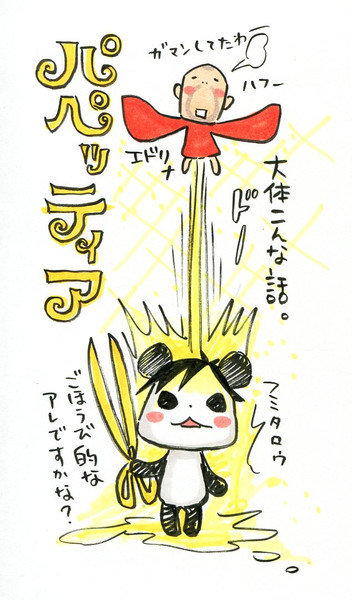 パペッティア
ガマンしてたわー
ハフー
エドリナ
大体こんな話。
ドー
フミタロウ
ごほうび的な
アレですかな?